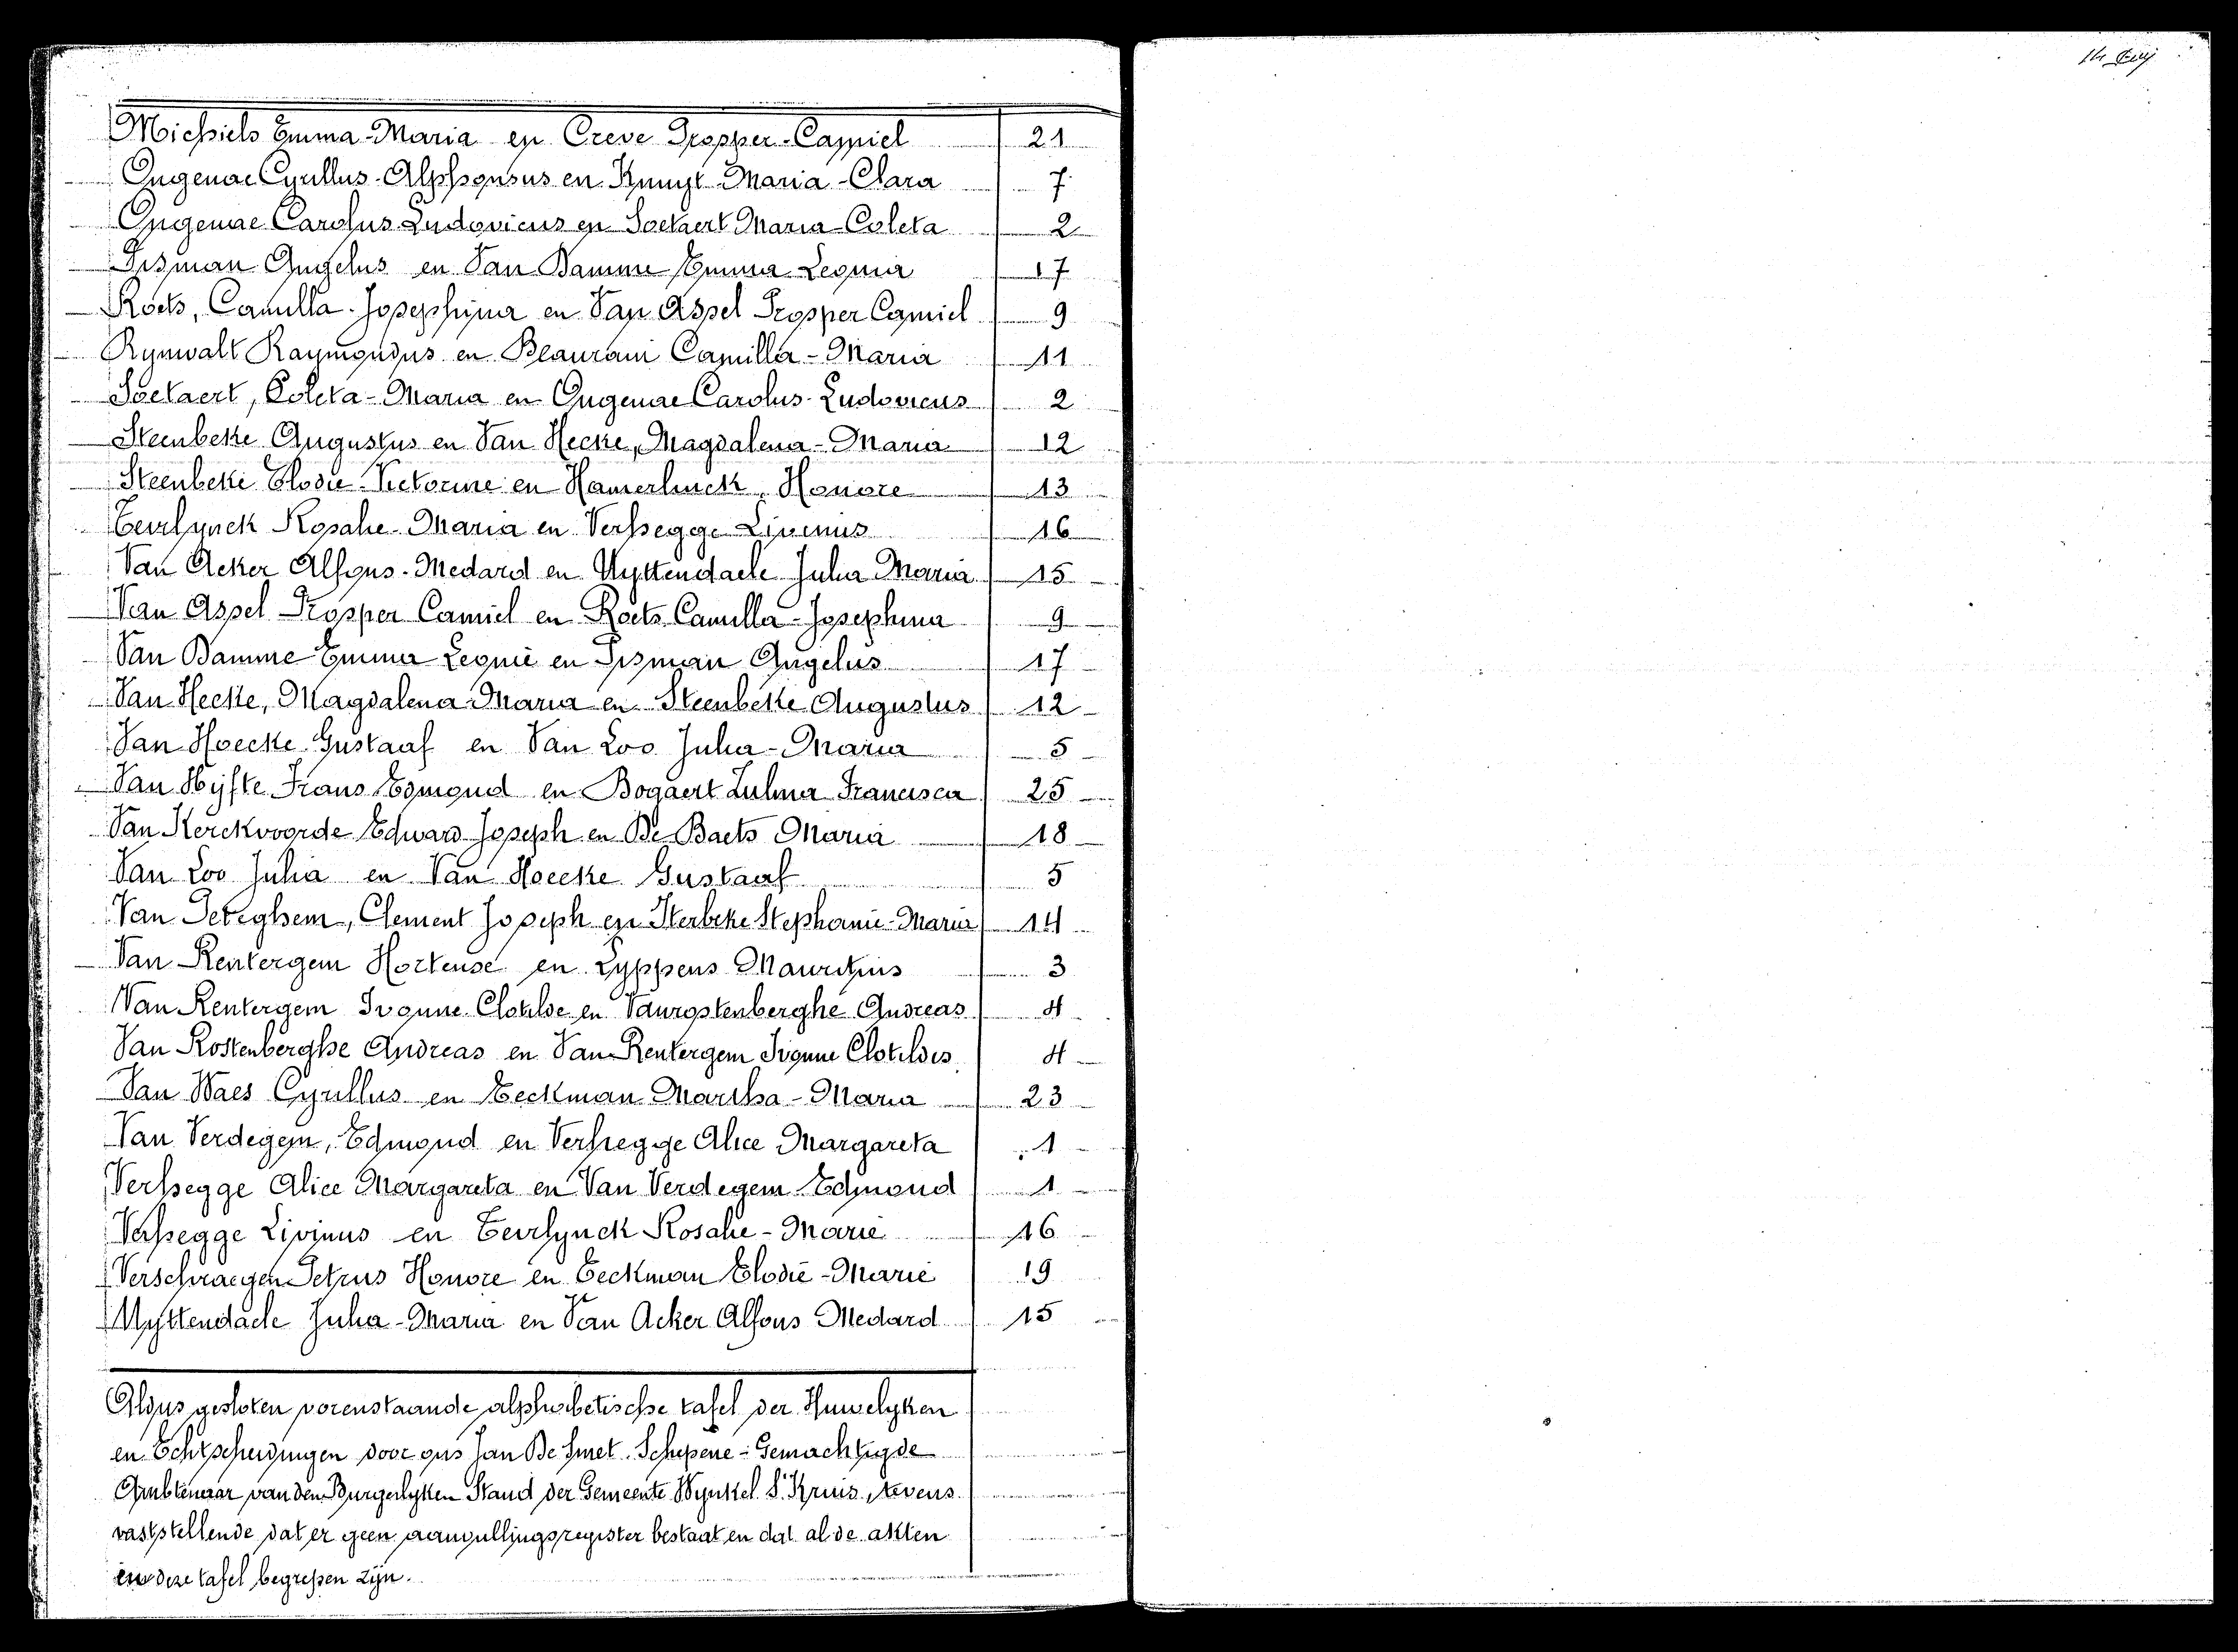 Michiels Emma Maria en Creve Prosper Camiel 21
Ongenae Cyrillus-Alphonsus en Kunyt Maria-Clara 7
Ongenae Carolus Ludovicus en Soetaert Maria-Coleta 2
Angelus en Van Damme Emma Leonia 17
Roets, Camilla-Josephina en Van Assel Prosper Camiel 9
Rynwalt Raymondus en Camilla-Maria 11
Soetaert, Coleta-Maria en Ongenae Carolus-Ludovicus 2
Steenbeke Augustus en Van Hecke, Magdalena-Maria 12
Steenbeke Elodie Victorine en Hamerlinck, Honore 13
Teirlynck Rosalie-Maria en Verhegge Livinus 16
Van Acker Alfons-Medard en Uyttendaele Julia Maria 15
Van Assel Prosper Camiel en Roets Camilla-Josephina 9
Van Damme Emma Leonie en Angelus 17
Van Hecke, Magdalena Maria en Steenbeke Augustus 12
Van Hoecke Gustaaf en Van Loo Julia-Maria 5
Van Hyfte Frans Edmond en Bogaert Zulma Francisca 25
Van Kerckvoorde Edward Joseph en De Baets Maria 18
Van Loo Julia en Van Hoecke Gustaaf 5
Van Peteghem, Clement Joseph en Sterbeke Stephanie-Maria 14
Van Rentergem Hortense en Lyppens Mauritius 3
Van Rentergem Ivonne Clotilde en Vanrostenberghe Andreas 4
Van Rostenberghe Andreas en Van Rentergem Ivonne Clotildis 4
Van Waes Cyrillus en Eeckman Martha-Maria 23
Van Verdegem, Edmond en Verhegge Alice Margareta 1
Verhegge Alice Margareta en Van Verdegem Edmond 1
Verhegge Livinus en Teirlynck Rosalie-Marie 16
Verschraegen Petrus Honore en Eeckman Elodie-Marie 19
Uyttendaele Julia-Maria en Van Acker Alfons Medard 15
Aldus gesloten vorenstaande alphabetische tafel der Huwelyken
en Echtscheidingen door ons Jan De Smet Schepene-Gemachtigde
Ambtenaar van den Burgerlyken Stand der Gemeente Wynkel St Kruis, tevens
vaststellende dat er geen aanvullingsregister bestaat en dat al de akten
in deze tafel begrepen zijn.